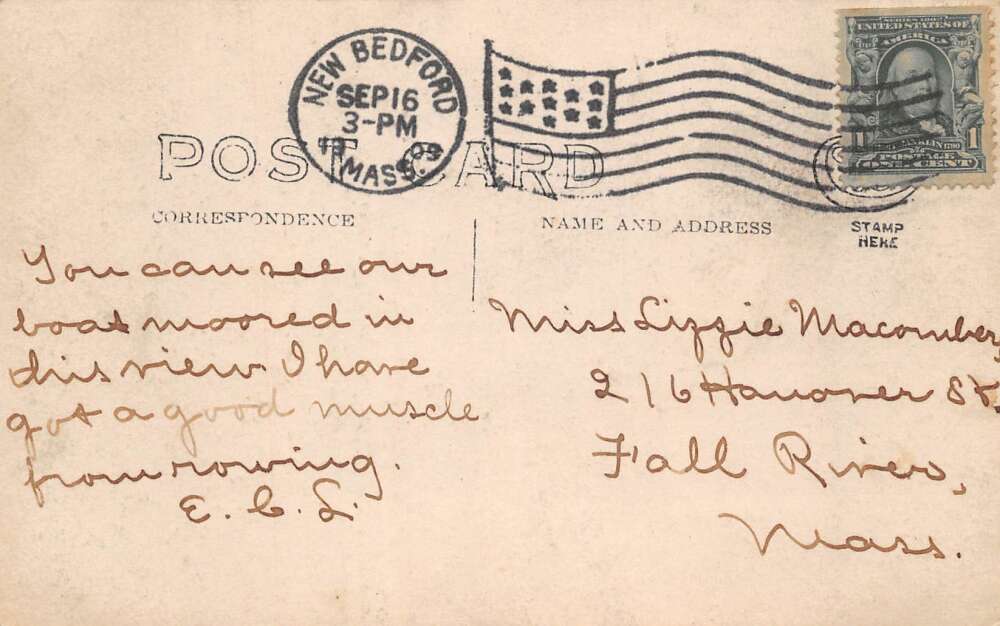 NEW BEDFORD
SEP 16
3-PM
MASS.
SERIES 1902
UNITED STATES OF
AMERICA
1 1
POSTAGE
ONE CENT
POST CARD
CORRESPONDENCE
NAME AND ADDRESS
STAMP
HERE
You can see our
boat moored in
this view. I have
got a good muscle
from rowing.
E. C. L.
Miss Lizzie Macomber,
216 Hanover St,
Fall River,
Mass.